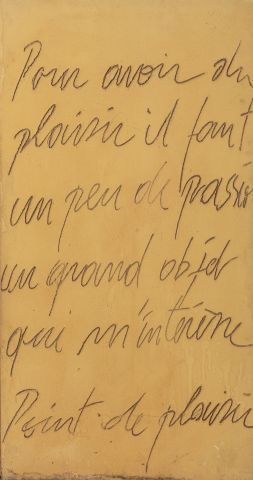 Pour avoir du
plaisir il faut
un peu de passion
un grand objet
qui m'intéresse
Point de plaisir